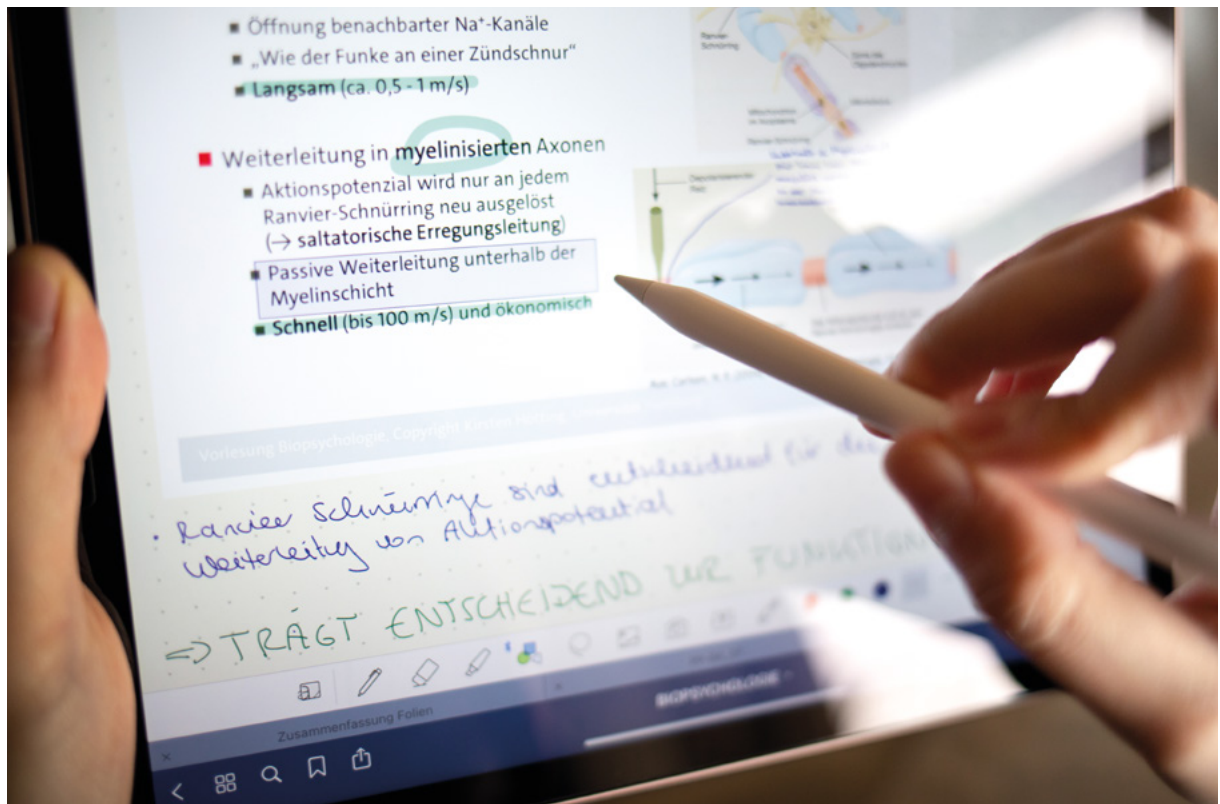 ▪ Öffnung benachbarter Na⁺-Kanäle
▪ „Wie der Funke an einer Zündschnur“
▪ Langsam (ca. 0,5 - 1 m/s)
▪ Weiterleitung in myelinisierten Axonen
▪ Aktionspotenzial wird nur an jedem
Ranvier-Schnürring neu ausgelöst
(→ saltatorische Erregungsleitung)
▪ Passive Weiterleitung unterhalb der
Myelinschicht
▪ Schnell (bis 100 m/s) und ökonomisch
Ranvier-
Schnürring
Vorlesung Biopsychologie, Copyright Kirsten
• Ranvier Schnürringe sind entscheidend für die
Weiterleitung von Aktionspotential
⇒ TRÄGT ENTSCHEIDEND ZUR FUNKTION
Zusammenfassung Folien
BIOPSYCHOLOGIE